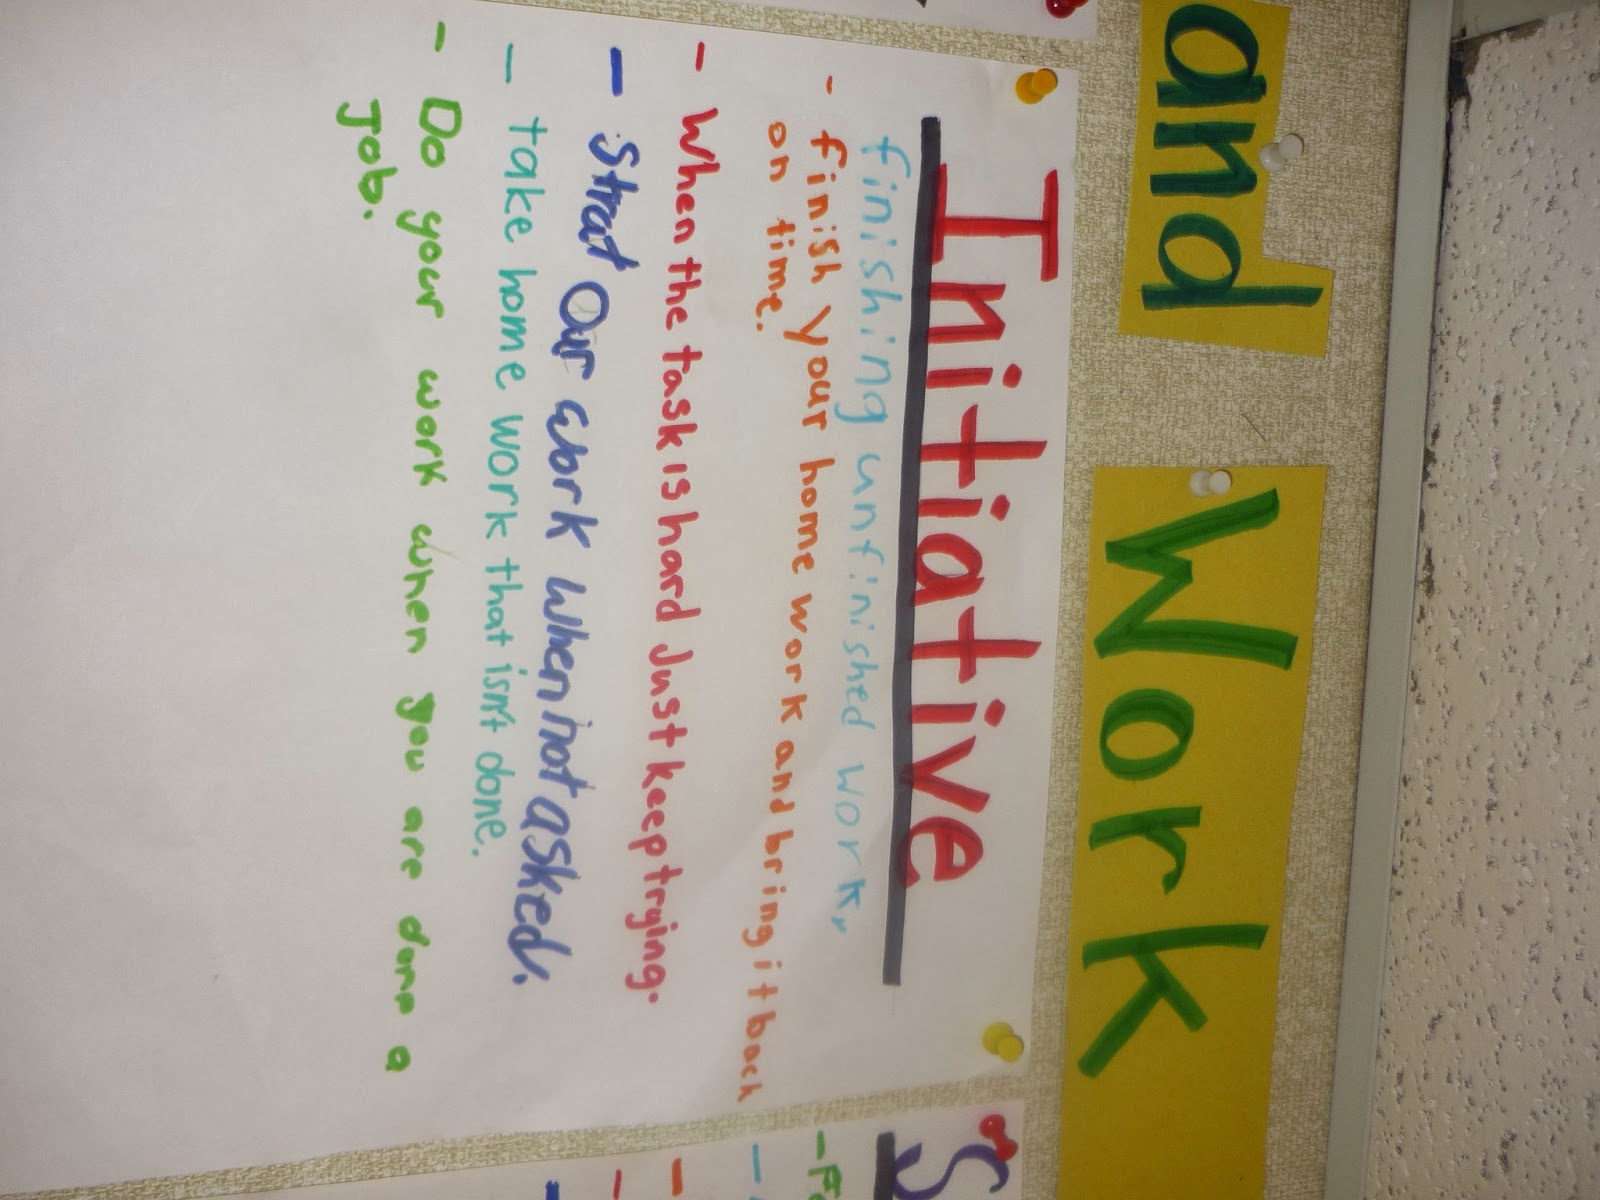 and Work
Initiative
finishing unfinished work,
- finish your home work and bring it back
on time.
- When the task is hard Just keep trying.
- Strat Our work when not asked.
- take home work that isn't done.
- Do your work when you are done a
Job.
S
- Fo
-
-
-
-